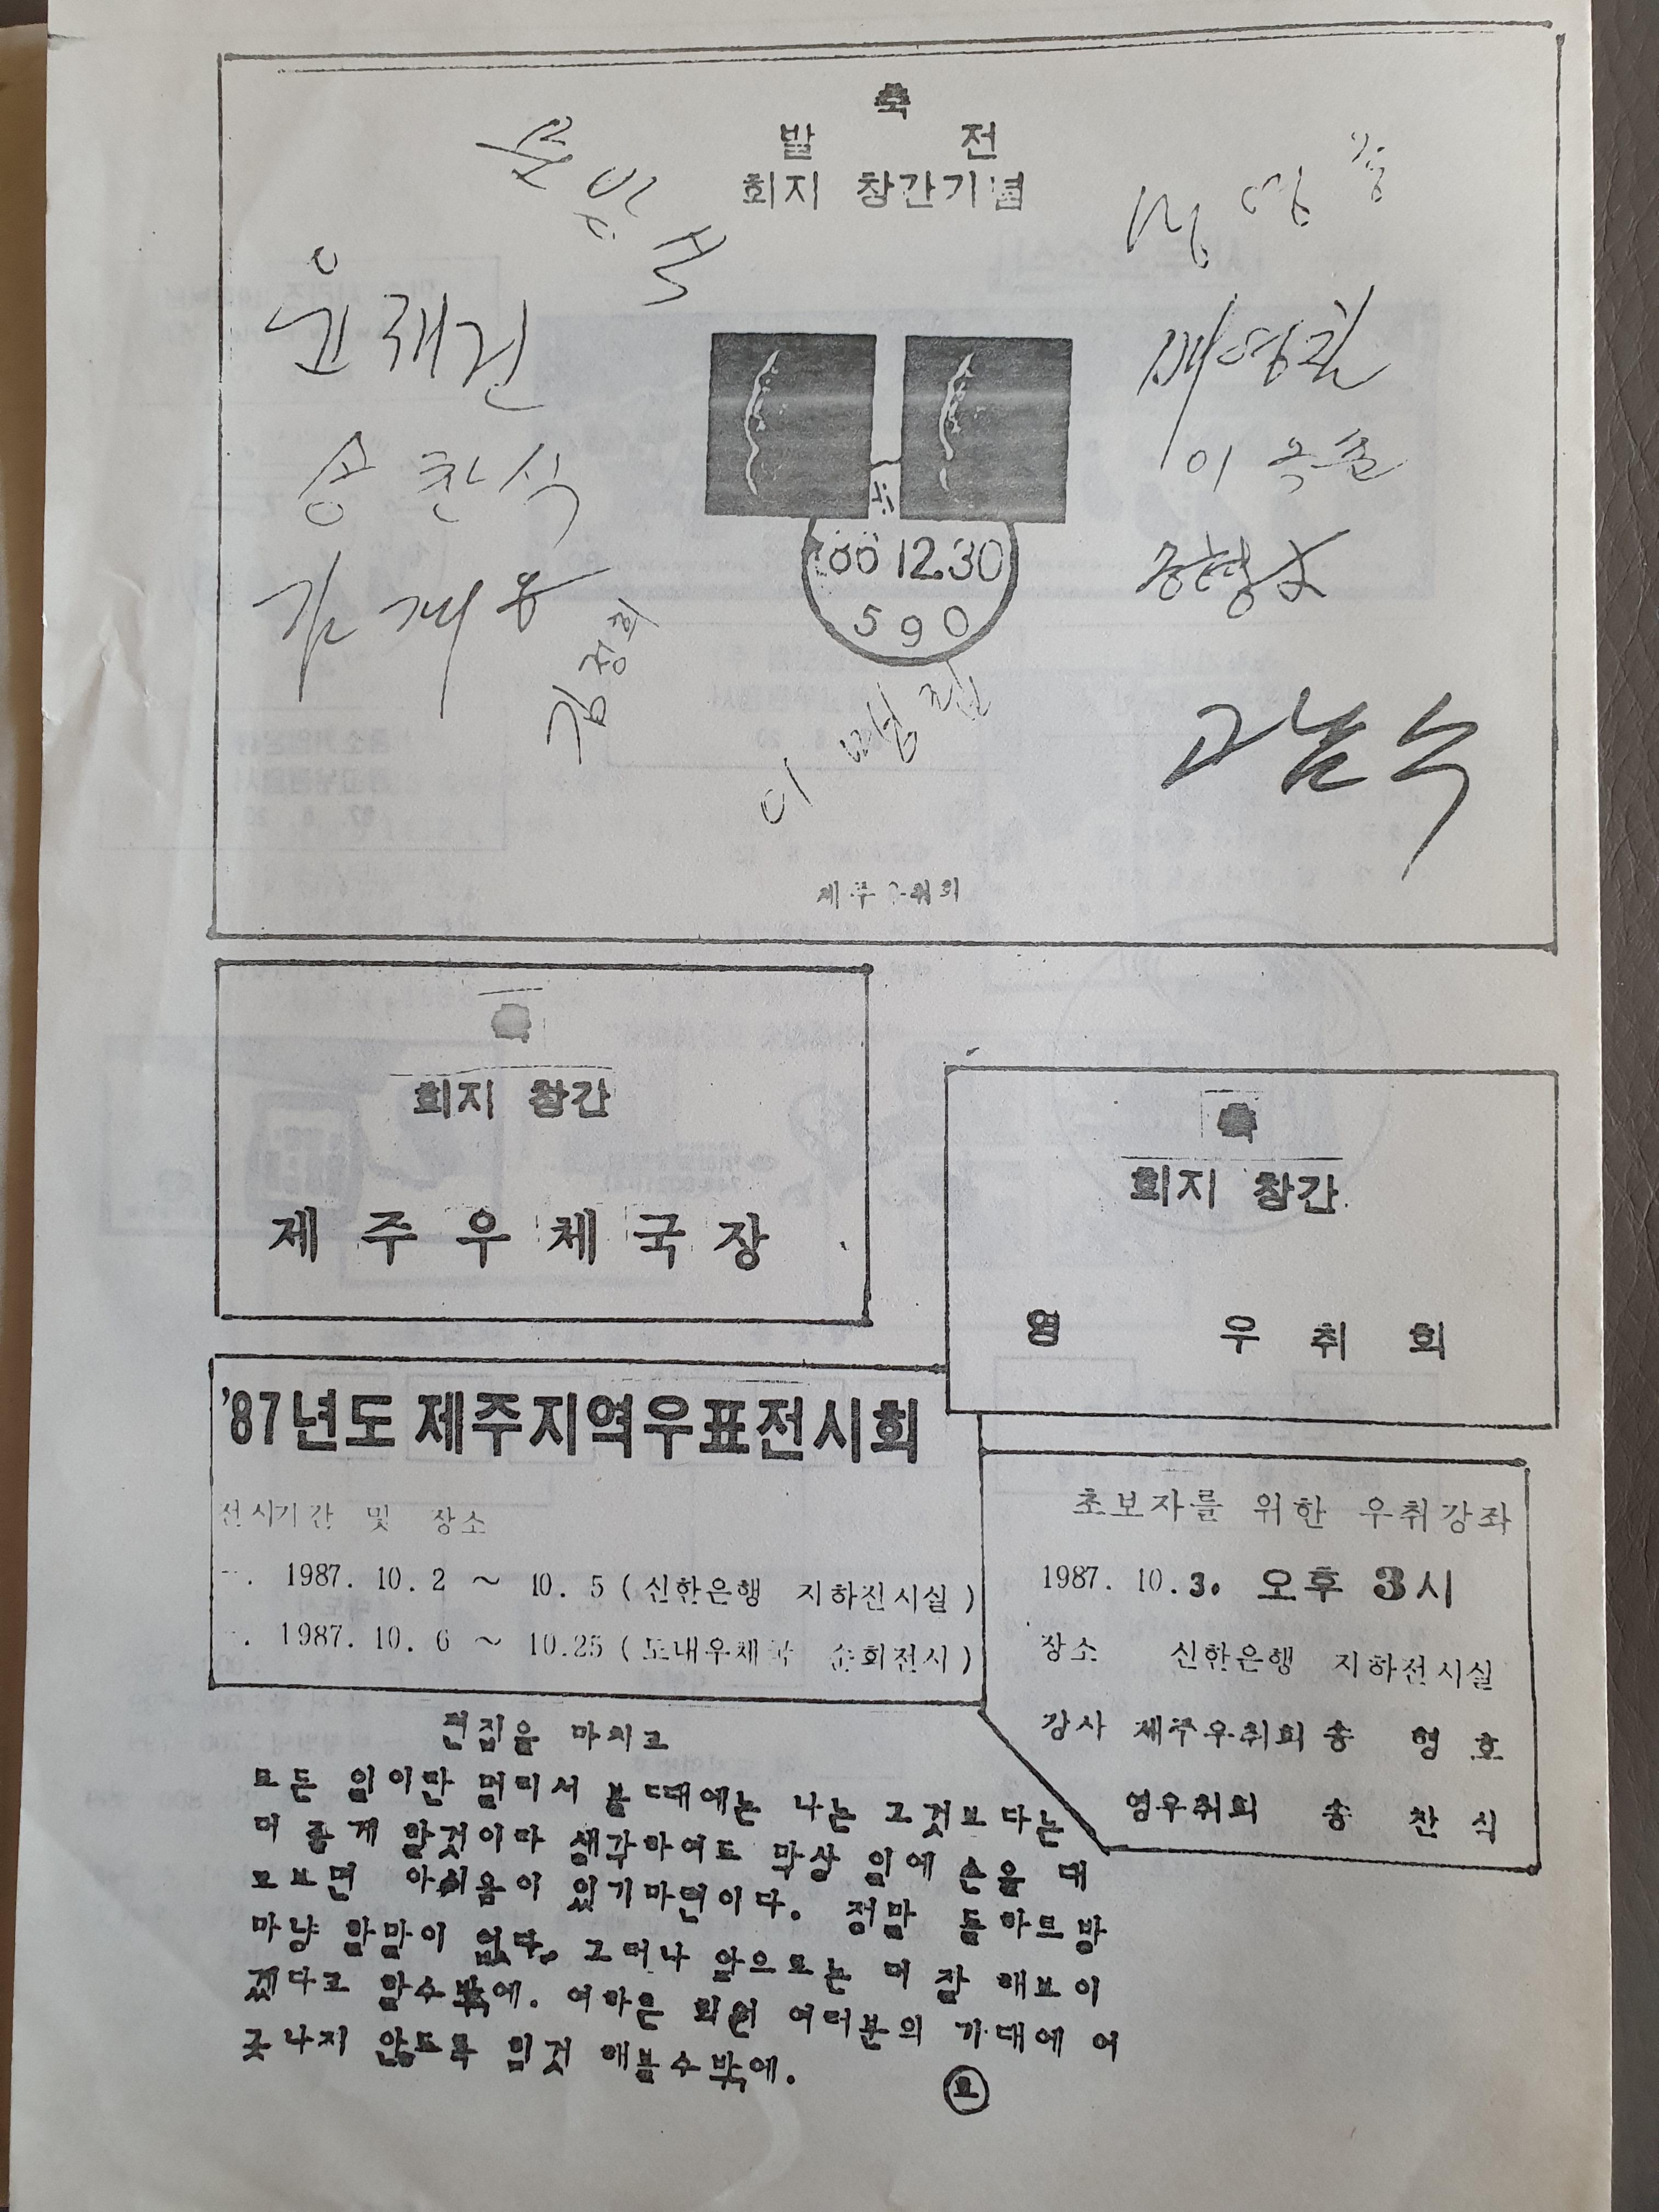 축
발 전
회지 창간기념
윤재진
송찬식
김정희
이
배영환
고남수
00 12.30
590
제주우취회
회지 창간
제주우체국장
축
회지 창간
영 우취회
'87년도 제주지역우표전시회
전시기간 및 장소
1987. 10. 2 ~ 10. 5 (신한은행 지하전시실)
1987. 10. 6 ~ 10.25 (도내우체국 순회전시)
초보자를 위한 우취강좌
1987. 10. 3. 오후 3시
장소 신한은행 지하전시실
강사 제주우취회 송 형 호
영우취회 송 찬 식
편집을 마치고
모든 일이란 멀리서 볼때에는 나는 그것보다는
더 좋게 할것이다 생각하여도 막상 일에 손을 대
고보면 아쉬움이 있기마련이다. 정말 돌하르방
마냥 할말이 없다. 그러나 앞으로는 더 잘 해보이
겠다고 할수밖에. 여하튼 회원 여러분의 기대에 어
긋나지 않도록 힘껏 해볼수밖에.